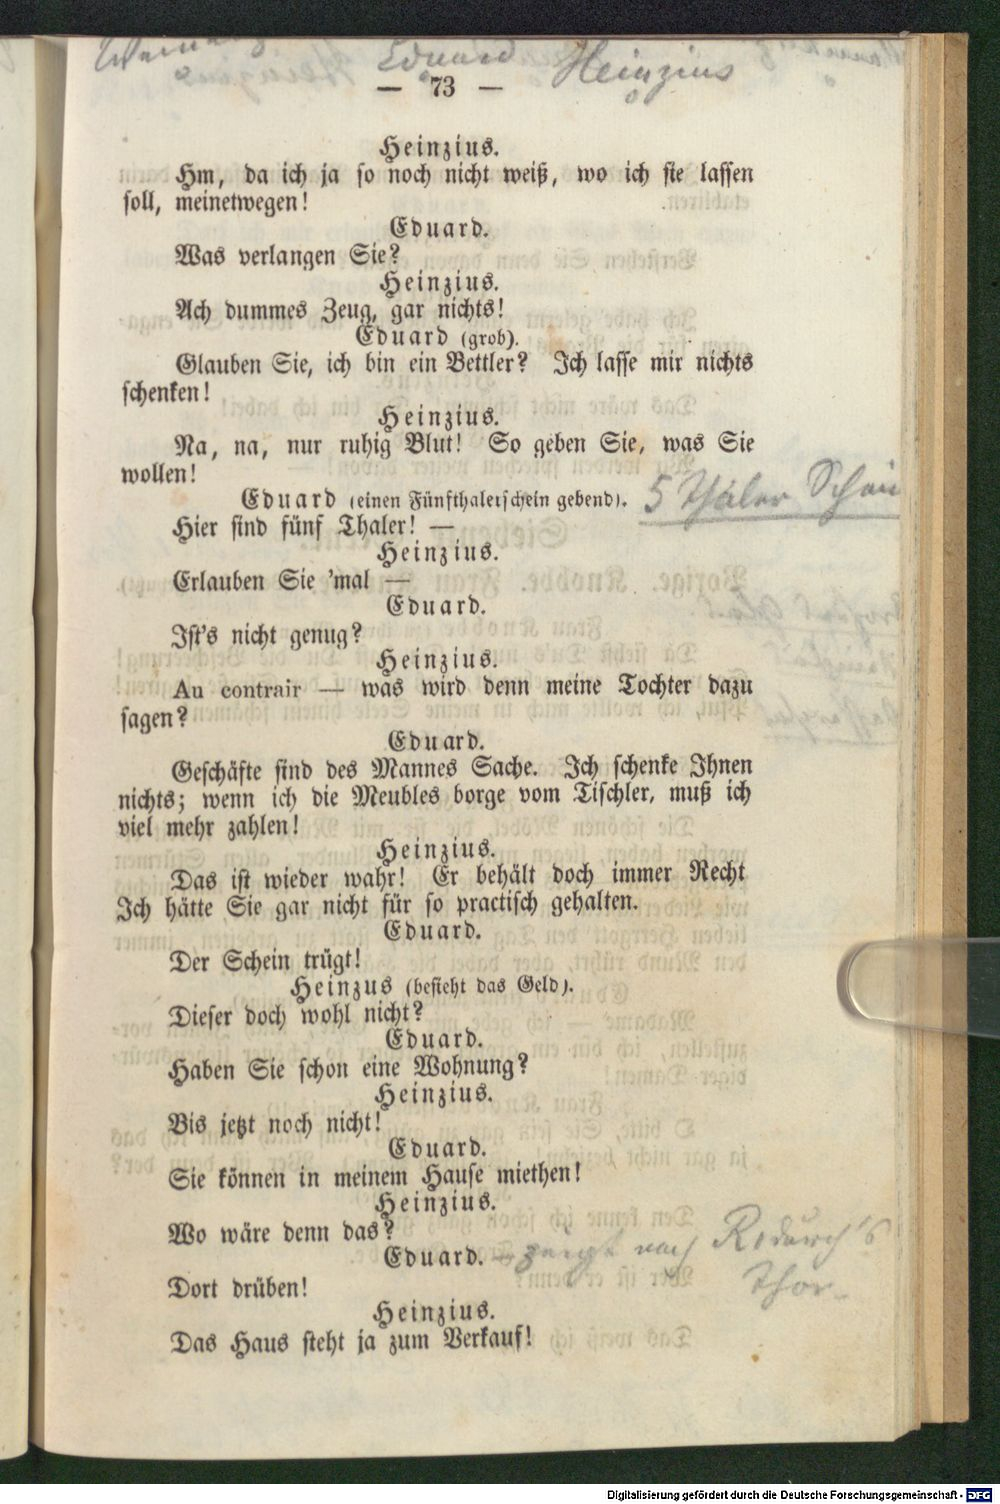 Eduard Heinzius
— 73 —
Heinzius.
Hm, da ich ja so noch nicht weiß, wo ich sie lassen
soll, meinetwegen!
Eduard.
Was verlangen Sie?
Heinzius.
Ach dummes Zeug, gar nichts!
Eduard (grob).
Glauben Sie, ich bin ein Bettler? Ich lasse mir nichts
schenken!
Heinzius.
Na, na, nur ruhig Blut! So geben Sie, was Sie
wollen!
Eduard (einen Fünfthalerschein gebend). 5 Thaler Schein
Hier sind fünf Thaler! —
Heinzius.
Erlauben Sie 'mal —
Eduard.
Ist's nicht genug?
Heinzius.
Au contrair — was wird denn meine Tochter dazu
sagen?
Eduard.
Geschäfte sind des Mannes Sache. Ich schenke Ihnen
nichts; wenn ich die Meubles borge vom Tischler, muß ich
viel mehr zahlen!
Heinzius.
Das ist wieder wahr! Er behält doch immer Recht
Ich hätte Sie gar nicht für so practisch gehalten.
Eduard.
Der Schein trügt!
Heinzus (besieht das Geld).
Dieser doch wohl nicht?
Eduard.
Haben Sie schon eine Wohnung?
Heinzius.
Bis jetzt noch nicht!
Eduard.
Sie können in meinem Hause miethen!
Heinzius.
Wo wäre denn das?
Eduard. — zeigt nach R, durch's
Thor.
Dort drüben!
Heinzius.
Das Haus steht ja zum Verkauf!
Digitalisierung gefördert durch die Deutsche Forschungsgemeinschaft - DFG